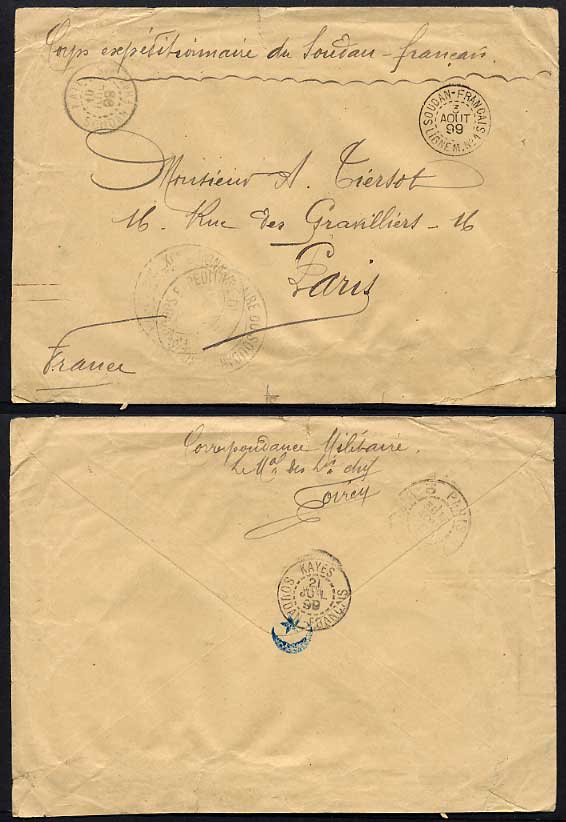 Corps expéditionnaire du Soudan-français.
SOUDAN-FRANÇAIS
3
AOUT
99
LIGNE M. Nº1
Monsieur A. Tiersot
16. Rue des Gravilliers - 16
Paris
France
CORPS EXPEDITIONNAIRE DU SOUDAN
Correspondance Militaire.
Le Mal des Lis chef
PARIS
KAYES
21
JUIL
99
SOUDAN-FRANÇAIS